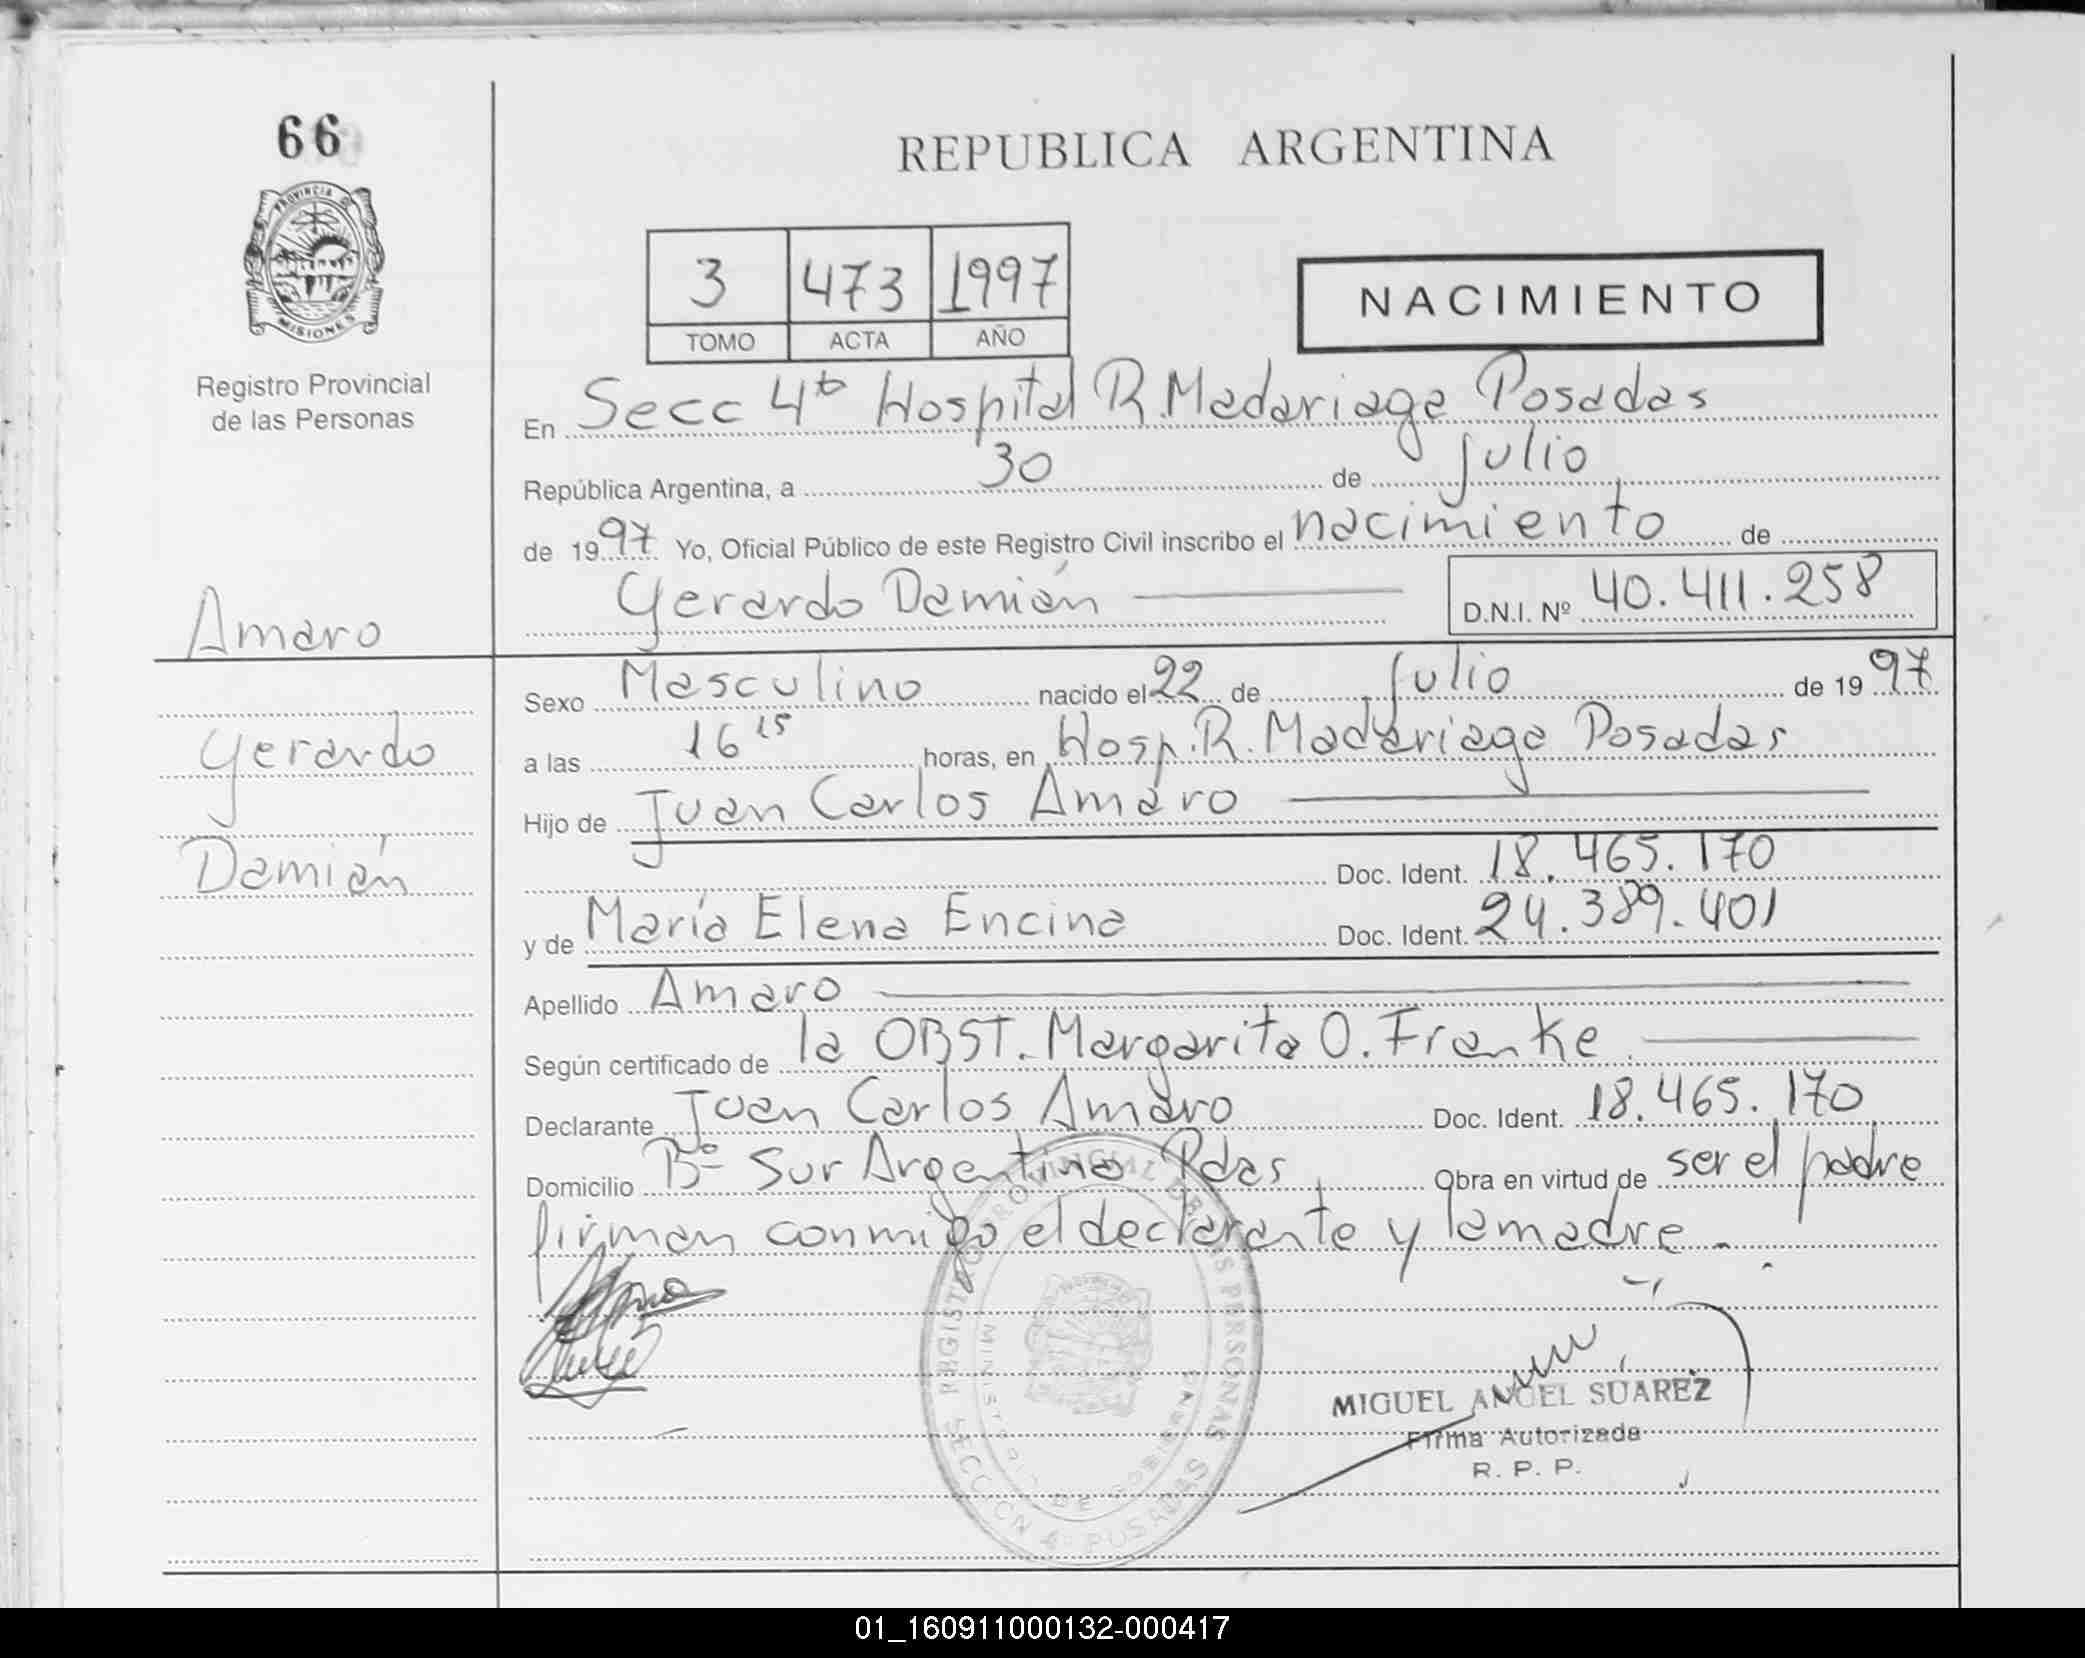 66
PROVINCIA DE
MISIONES
Registro Provincial
de las Personas
REPUBLICA ARGENTINA
3 473 1997
TOMO ACTA AÑO
NACIMIENTO
En Secc 4ta Hospital R. Madariaga Posadas
República Argentina, a 30 de julio
de 1997 Yo, Oficial Público de este Registro Civil inscribo el nacimiento de
Gerardo Damián D.N.I. Nº 40.411.258
Amaro
Gerardo
Damián
Sexo Masculino nacido el 22 de Julio de 1997
a las 16 15 horas, en Hosp. R. Madariaga Posadas
Hijo de Juan Carlos Amaro
Doc. Ident. 18.465.170
y de María Elena Encina Doc. Ident. 24.389.401
Apellido Amaro
Según certificado de la OBST. Margarita O. Franke
Declarante Juan Carlos Amaro Doc. Ident. 18.465.170
Domicilio Bº Sur Argentino Pdas Obra en virtud de ser el padre
firman conmigo el declarante y la madre.
REGISTRO PROVINCIAL DE LAS PERSONAS
MINISTERIO DE GOBIERNO
SECCION 4º POSADAS
MIGUEL ANGEL SUAREZ
Firma Autorizada
R. P. P.
01_160911000132-000417